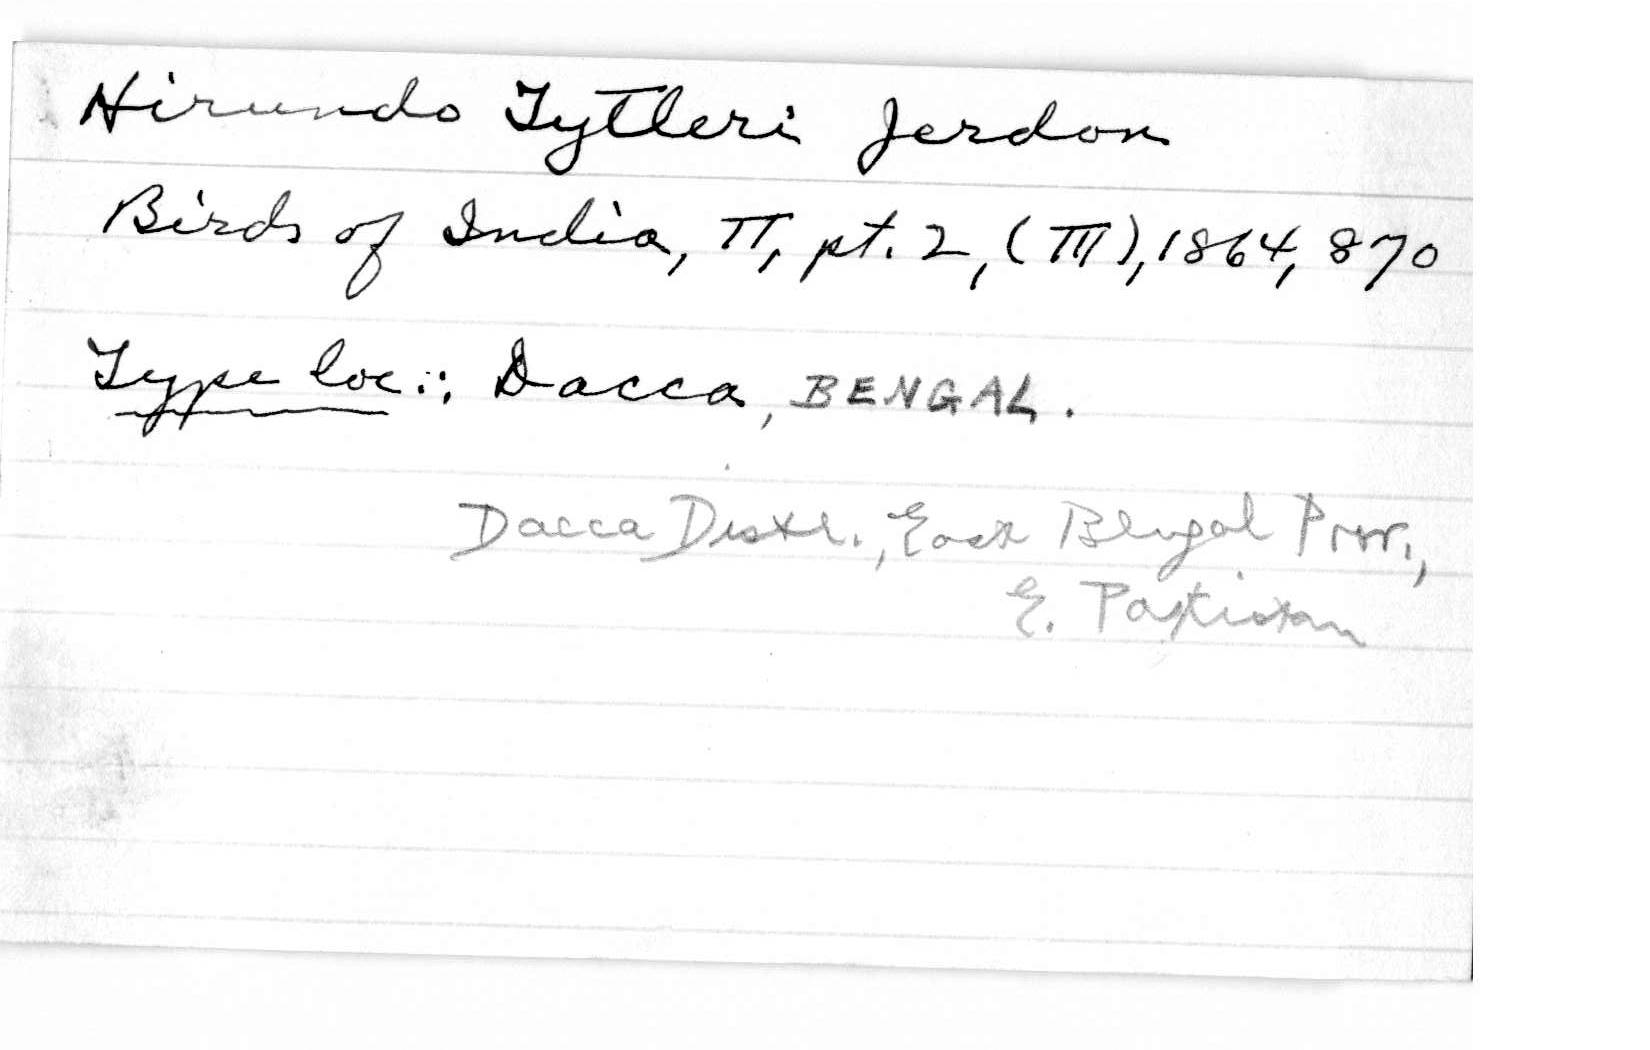 Hirundo Tytleri Jerdon
Birds of India, II, pt. 2, (III), 1864, 870
Type loc.: Dacca, BENGAL.
Dacca Distr., East Bengal Prov.,
E. Pakistan